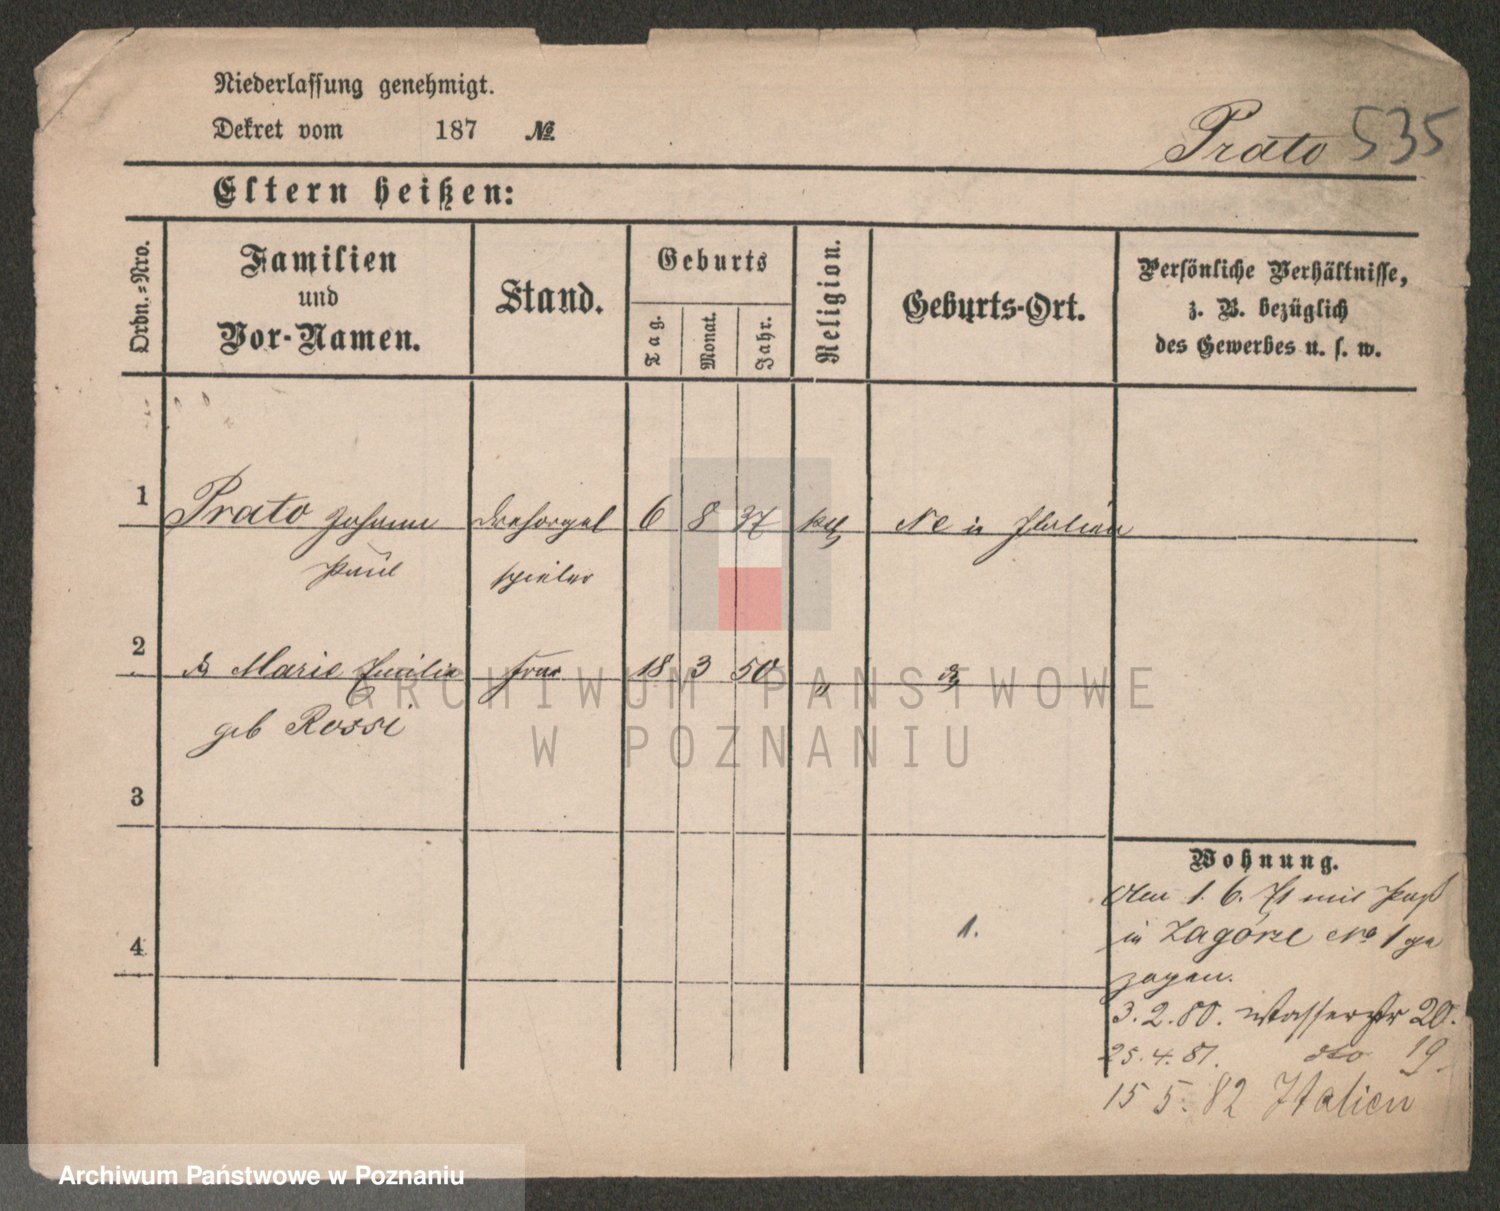 Niederlassung genehmigt.
Dekret vom 187 №
Prato 535
Eltern heißen:
Ordn.-Nro.
Familien und Vor-Namen.
Stand.
Geburts
Tag.
Monat.
Jahr.
Religion.
Geburts-Ort.
Persönliche Verhältnisse,
z. B. bezüglich
des Gewerbes u. s. w.
1 Prato Johann Drehorgel 6 8 37 kth Ne in Italien
Paul spieler
2 Marie Emilie Frau 18 3 50 "
geb Rossi
3
4
1.
Wohnung.
Den 1. 6. 71 mit Paß
in Zagórze No 1 ge
zogen.
3. 2. 80. Wasserstr 20.
25. 4. 81. dto 19.
15 5. 82 Italien
ARCHIWUM PAŃSTWOWE
W POZNANIU
Archiwum Państwowe w Poznaniu